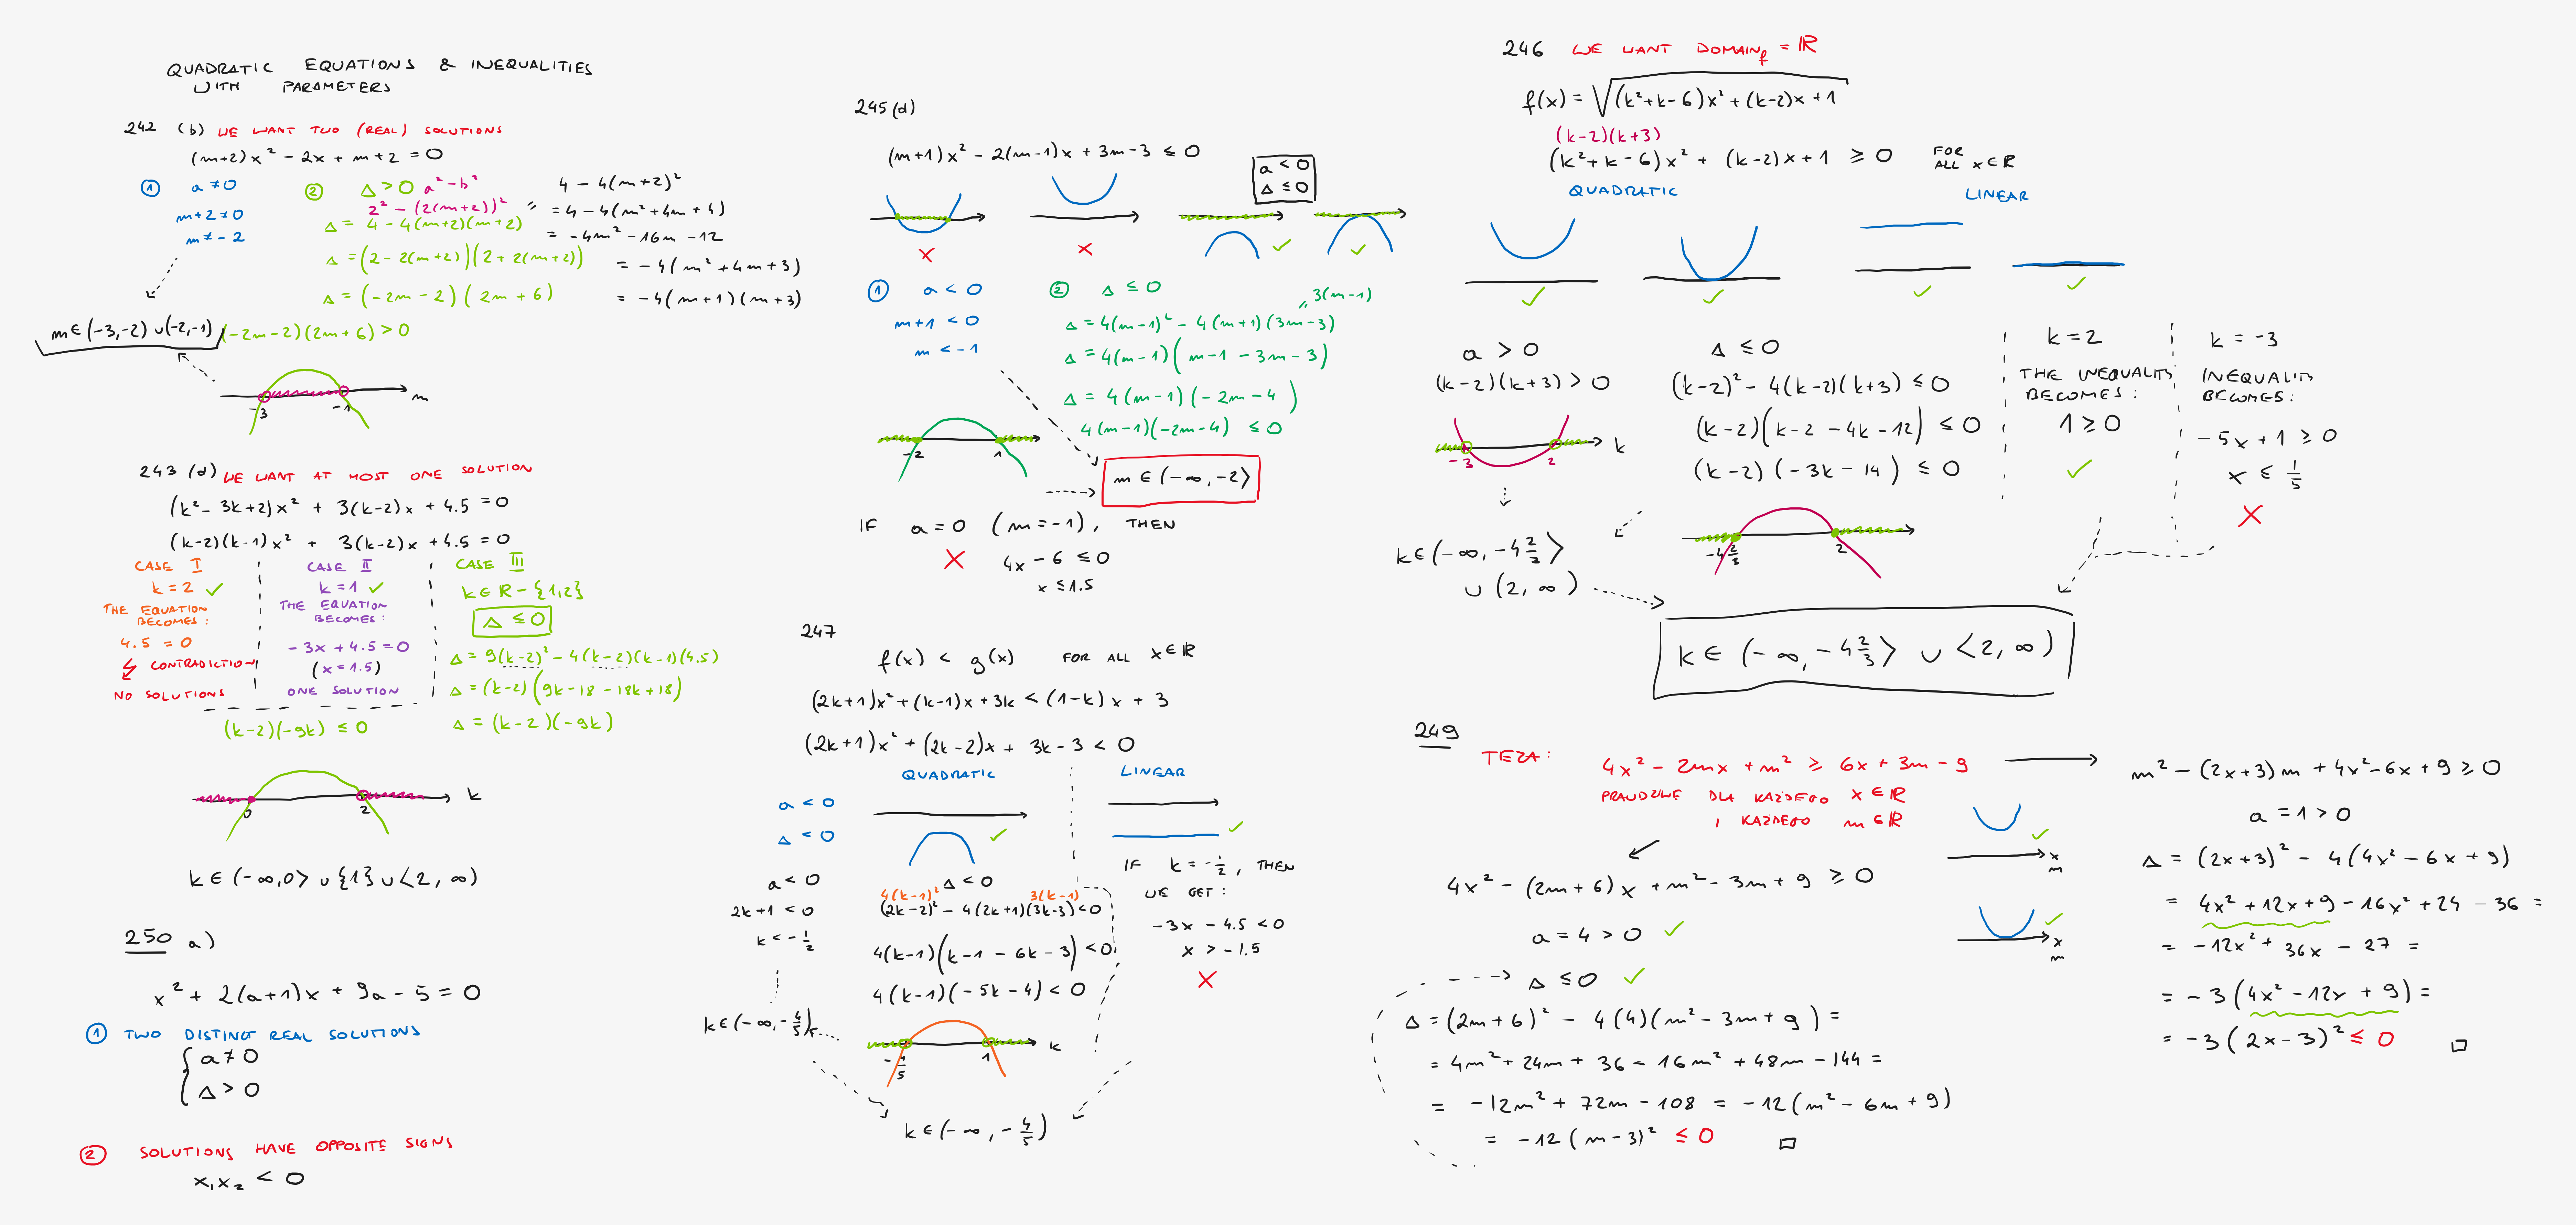 QUADRATIC EQUATIONS & INEQUALITIES
WITH PARAMETERS
242 (b) WE WANT TWO (REAL) SOLUTIONS
(m+2)x² - 2x + m+2 = 0
① a ≠ 0
m+2 ≠ 0
m ≠ -2
② Δ > 0 a² - b²
2² - (2(m+2))²
Δ = 4 - 4(m+2)(m+2)
Δ = (2 - 2(m+2))(2 + 2(m+2))
Δ = (-2m - 2)(2m + 6)
4 - 4(m+2)²
= 4 - 4(m² + 4m + 4)
= -4m² - 16m - 12
= -4(m² + 4m + 3)
= -4(m+1)(m+3)
m ∈ (-3,-2) ∪ (-2,-1)
(-2m-2)(2m+6) > 0
-3 -1 m
243 (d) WE WANT AT MOST ONE SOLUTION
(k² - 3k + 2)x² + 3(k-2)x + 4.5 = 0
(k-2)(k-1)x² + 3(k-2)x + 4.5 = 0
CASE I
k = 2 ✓
THE EQUATION
BECOMES:
4.5 = 0
CONTRADICTION
NO SOLUTIONS
CASE II
k = 1 ✓
THE EQUATION
BECOMES:
-3x + 4.5 = 0
(x = 1.5)
ONE SOLUTION
CASE III
k ∈ ℝ - {1,2}
Δ ≤ 0
Δ = 9(k-2)² - 4(k-2)(k-1)(4.5)
Δ = (k-2)(9k - 18 - 18k + 18)
Δ = (k-2)(-9k)
(k-2)(-9k) ≤ 0
0 2 k
k ∈ (-∞,0⟩ ∪ {1} ∪ ⟨2, ∞)
250 a)
x² + 2(a+1)x + 9a - 5 = 0
① TWO DISTINCT REAL SOLUTIONS
a ≠ 0
Δ > 0
② SOLUTIONS HAVE OPPOSITE SIGNS
x₁x₂ < 0
245 (d)
(m+1)x² - 2(m-1)x + 3m-3 ≤ 0
a < 0
Δ ≤ 0
① a < 0
m+1 < 0
m < -1
② Δ ≤ 0
3(m-1)
Δ = 4(m-1)² - 4(m+1)(3m-3)
Δ = 4(m-1)(m-1 - 3m - 3)
Δ = 4(m-1)(-2m-4)
4(m-1)(-2m-4) ≤ 0
-2 1
m ∈ (-∞, -2⟩
IF a = 0 (m = -1), THEN
4x - 6 ≤ 0
x ≤ 1.5
247
f(x) < g(x) FOR ALL x ∈ ℝ
(2k+1)x² + (k-1)x + 3k < (1-k)x + 3
(2k+1)x² + (2k-2)x + 3k - 3 < 0
QUADRATIC
a < 0
Δ < 0
LINEAR
a < 0
2k+1 < 0
k < -1/2
Δ < 0
4(k-1)² 3(k-1)
(2k-2)² - 4(2k+1)(3k-3) < 0
4(k-1)(k-1 - 6k - 3) < 0
4(k-1)(-5k-4) < 0
IF k = -1/2, THEN
WE GET:
-3x - 4.5 < 0
x > -1.5
k ∈ (-∞, -4/5)
-1/5 1 k
k ∈ (-∞, -4/5)
246 WE WANT DOMAIN_f = ℝ
f(x) = √((k²+k-6)x² + (k-2)x + 1
(k-2)(k+3)
(k²+k-6)x² + (k-2)x + 1 ≥ 0 FOR
ALL x ∈ ℝ
QUADRATIC
LINEAR
a > 0
(k-2)(k+3) > 0
-3 2 k
Δ ≤ 0
(k-2)² - 4(k-2)(k+3) ≤ 0
(k-2)(k-2 - 4k - 12) ≤ 0
(k-2)(-3k-14) ≤ 0
-4 2/3 2
k = 2
THE INEQUALITY
BECOMES:
1 ≥ 0
k = -3
INEQUALITY
BECOMES:
-5x + 1 ≥ 0
x ≤ 1/5
k ∈ (-∞, -4 2/3⟩
∪ (2, ∞)
k ∈ (-∞, -4 2/3⟩ ∪ ⟨2, ∞)
249
TEZA: 4x² - 2mx + m² ≥ 6x + 3m - 9
PRAWDZIWE DLA KAŻDEGO x ∈ ℝ
I KAŻDEGO m ∈ ℝ
4x² - (2m+6)x + m² - 3m + 9 ≥ 0
a = 4 > 0 ✓
Δ ≤ 0 ✓
Δ = (2m+6)² - 4(4)(m² - 3m + 9) =
= 4m² + 24m + 36 - 16m² + 48m - 144 =
= -12m² + 72m - 108 = -12(m² - 6m + 9)
= -12(m-3)² ≤ 0 □
x
m
x
m
m² - (2x+3)m + 4x² - 6x + 9 ≥ 0
a = 1 > 0
Δ = (2x+3)² - 4(4x² - 6x + 9)
= 4x² + 12x + 9 - 16x² + 24 - 36 =
= -12x² + 36x - 27 =
= -3(4x² - 12x + 9) =
= -3(2x-3)² ≤ 0 □